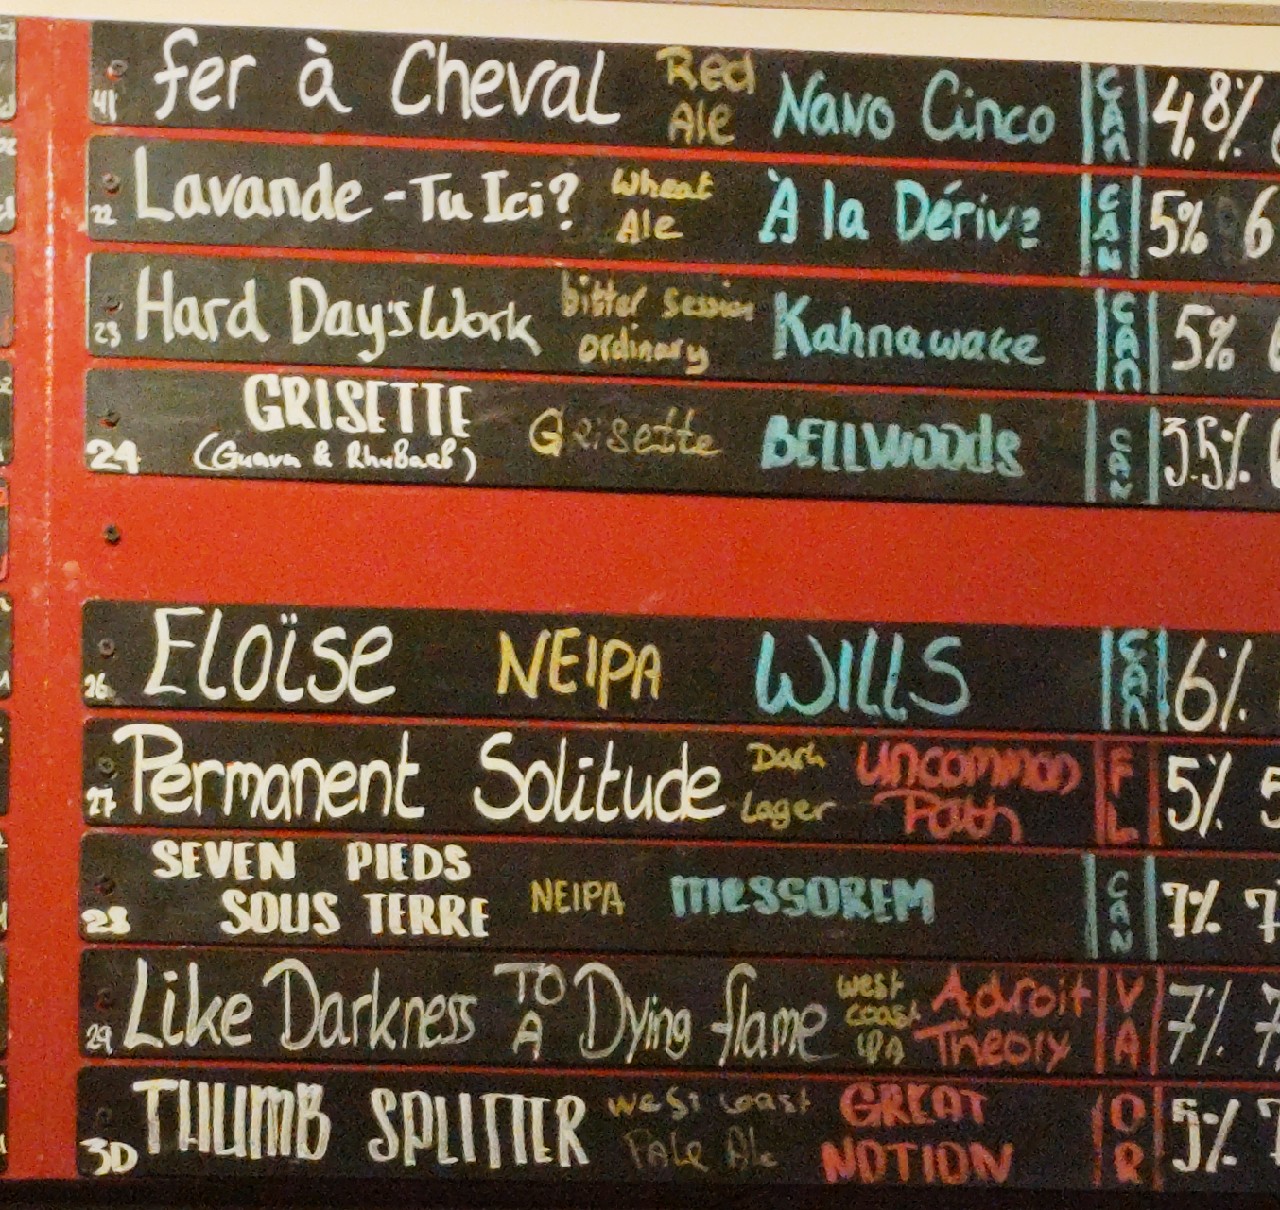 41 fer à Cheval Red Ale Navo Cinco CAN 4,8%
22 Lavande-Tu Ici? Wheat Ale À la Dérive CAN 5% 6
23 Hard Day's Work bitter session ordinary Kahnawake CAN 5%
24 GRISETTE (Guava & Rhubarb) Grisette BELLWOODS CAN 3.5%
26 Eloïse NEIPA WILLS CAN 6%
27 Permanent Solitude Dark Lager Uncommon Path FL 5% 5
28 SEVEN PIEDS SOUS TERRE NEIPA MESSOREM CAN 7% 7
29 Like Darkness TO A Dying flame west coast IPA Adroit Theory VA 7% 7
30 THUMB SPLITTER west coast Pale Ale GREAT NOTION OR 5%